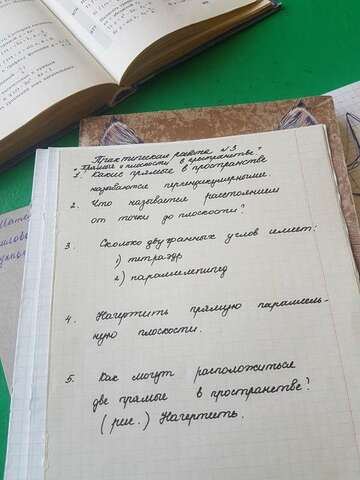 Практическая работа №3
"Прямые и плоскости в пространстве"
1. Какие прямые в пространстве
называются перпендикулярными.
2. Что называется расстоянием
от точки до плоскости?
3. Сколько двугранных углов имеет:
1) тетраэдр
2) параллелепипед
4. Начертить прямую параллель-
ную плоскости.
5. Как могут расположиться
две прямые в пространстве?
(рис.) Начертить.